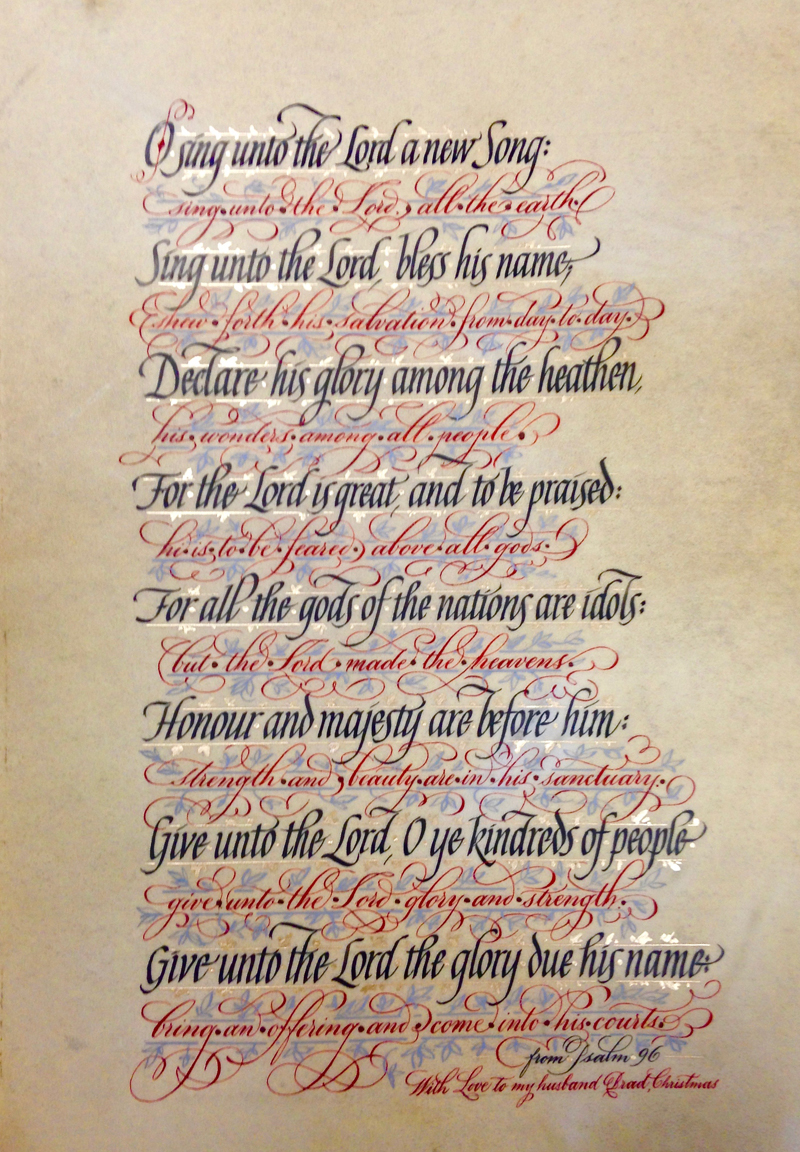 O sing unto the Lord a new Song:
sing unto the Lord, all the earth.
Sing unto the Lord, bless his name;
shew forth his salvation from day to day.
Declare his glory among the heathen,
his wonders among all people.
For the Lord is great, and to be praised:
he is to be feared above all gods.
For all the gods of the nations are idols:
but the Lord made the heavens.
Honour and majesty are before him:
strength and beauty are in his sanctuary.
Give unto the Lord, O ye kindreds of people
give unto the Lord glory and strength.
Give unto the Lord the glory due his name:
bring an offering and come into his courts.
from Psalm 96
With Love to my husband Brad, Christmas